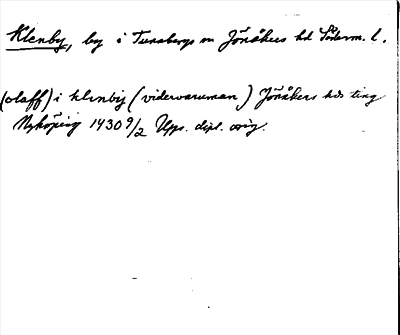 Klenby, by i Tunabergs sn Jönåkers hd Söderm. l.
(olaff) i klenbij (vidervaruman) Jönåkers hds ting
Nyköping 1430 9/2 Upps. dipl. orig.